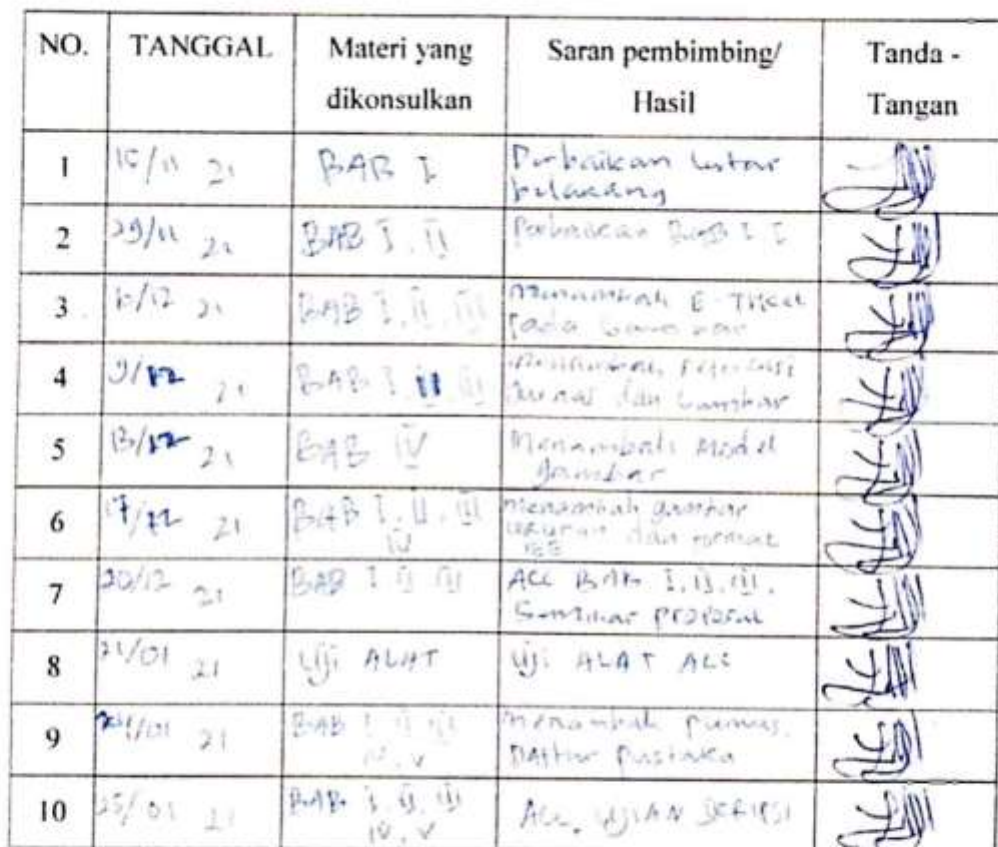 NO. TANGGAL Materi yang Saran pembimbing/ Tanda -
dikonsulkan Hasil Tangan
1 15/11 21 BAB I Perbaikan latar
belakang
2 29/11 21 BAB I, II Perbaikan BAB I I
3 21 BAB I, II, III Menambah
pada
4 9/12 21 BAB I II III Menambah
Jurnal dan Gambar
5 13/12 21 BAB IV Menambah Model
gambar
6 17/12 21 BAB I, II, III menambah gambar
IV ukuran dan format
7 20/12 21 BAB I II III ACC BAB I, II, III.
Seminar proposal
8 21/01 21 Uji ALAT Uji ALAT ACC
9 /01 21 BAB I II III Menambah
IV, V Daftar Pustaka
10 25/01 21 BAB I, II, III ACC, UJIAN SKRIPSI
IV, V